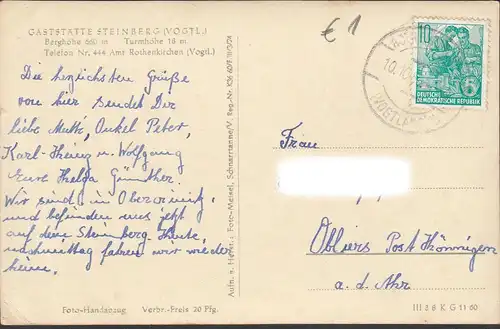 GASTSTÄTTE STEINBERG (VOGTL.)
Berghöhe 660 m Turmhöhe 18 m
Telefon Nr. 444 Amt Rothenkirchen (Vogtl.)
€1
Die herzlichsten Grüße
von hier sendet Dir
liebe Mutti, Onkel Peter,
Karl-Heinz u. Wolfgang
Eure Helga Günther
Wir sind in
und befinden uns jetzt
auf dem Steinberg. Heute
nachmittag fahren wir wieder
heim.
Foto-Handabzug Verbr.-Preis 20 Pfg.
Aufn. u. Foto-Meisel, Schnarrtanne/V. Reg.-Nr.
10
DEUTSCHE
DEMOKRATISCHE REPUBLIK
Frau
Post
a. d. Ahr
III 8 8 K G 11 60